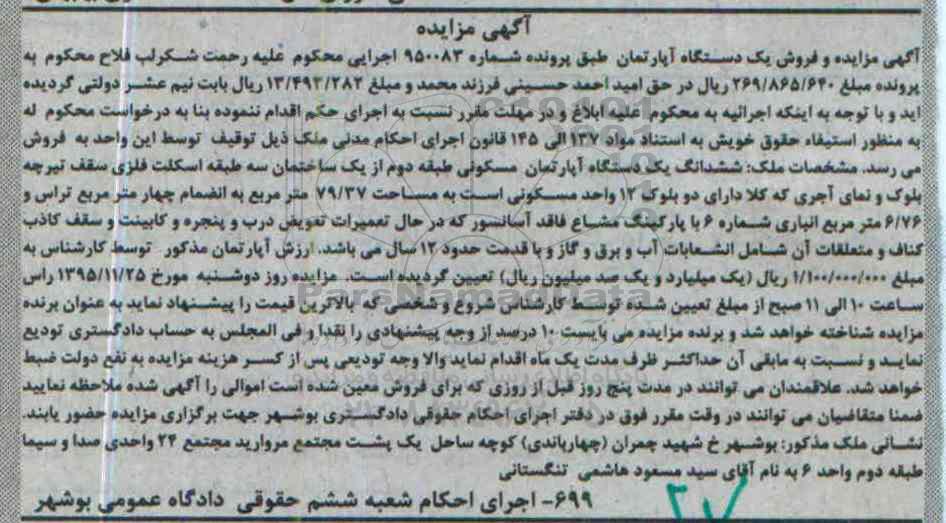 آگهی مزایده
آگهی مزایده و فروش یک دستگاه آپارتمان طبق پرونده شماره ۹۵۰۰۸۳ اجرایی محکوم علیه رحمت شکرلب فلاح محکوم به
پرونده مبلغ ۲۶۹/۸۶۵/۶۴۰ ریال در حق امید احمد حسینی فرزند محمد و مبلغ ۱۳/۴۹۳/۲۸۲ ریال بابت نیم عشر دولتی گردیده
اید و با توجه به اینکه اجرائیه به محکوم علیه ابلاغ و در مهلت مقرر نسبت به اجرای حکم اقدام ننموده بنا به درخواست محکوم له
به منظور استیفاء حقوق خویش به استناد مواد ۱۳۷ الی ۱۴۵ قانون اجرای احکام مدنی ملک ذیل توقیف توسط این واحد به فروش
می رسد. مشخصات ملک: ششدانگ یک دستگاه آپارتمان مسکونی طبقه دوم از یک ساختمان سه طبقه اسکلت فلزی سقف تیرچه
بلوک و نمای آجری که کلا دارای دو بلوک ۱۲ واحد مسکونی است به مساحت ۷۹/۳۷ متر مربع به انضمام چهار متر مربع تراس و
۶/۷۶ متر مربع انباری شماره ۶ با پارکینگ مشاع فاقد آسانسور که در حال تعمیرات تعویض درب و پنجره و کابینت و سقف کاذب
کناف و متعلقات آن شامل انشعابات آب و برق و گاز و با قدمت حدود ۱۲ سال می باشد. ارزش آپارتمان مذکور توسط کارشناس به
مبلغ ۱/۱۰۰/۰۰۰/۰۰۰ ریال (یک میلیارد و یک صد میلیون ریال) تعیین گردیده است. مزایده روز دوشنبه مورخ ۱۳۹۵/۱۱/۲۵ راس
ساعت ۱۰ الی ۱۱ صبح از مبلغ تعیین شده توسط کارشناس شروع و شخصی که بالاترین قیمت را پیشنهاد نماید به عنوان برنده
مزایده شناخته خواهد شد و برنده مزایده می بایست ۱۰ درصد از وجه پیشنهادی را نقدا و فی المجلس به حساب دادگستری تودیع
نماید و نسبت به مابقی آن حداکثر ظرف مدت یک ماه اقدام نماید والا وجه تودیعی پس از کسر هزینه مزایده به نفع دولت ضبط
خواهد شد. علاقمندان می توانند در مدت پنج روز قبل از روزی که برای فروش معین شده است اموالی را آگهی شده ملاحظه نمایید
ضمنا متقاضیان می توانند در وقت مقرر فوق در دفتر اجرای احکام حقوقی دادگستری بوشهر جهت برگزاری مزایده حضور یابند.
نشانی ملک مذکور: بوشهر خ شهید چمران (چهارباندی) کوچه ساحل یک پشت مجتمع مروارید مجتمع ۲۴ واحدی صدا و سیما
طبقه دوم واحد ۶ به نام آقای سید مسعود هاشمی تنگستانی
۶۹۹- اجرای احکام شعبه ششم حقوقی دادگاه عمومی بوشهر
ParsNamadData